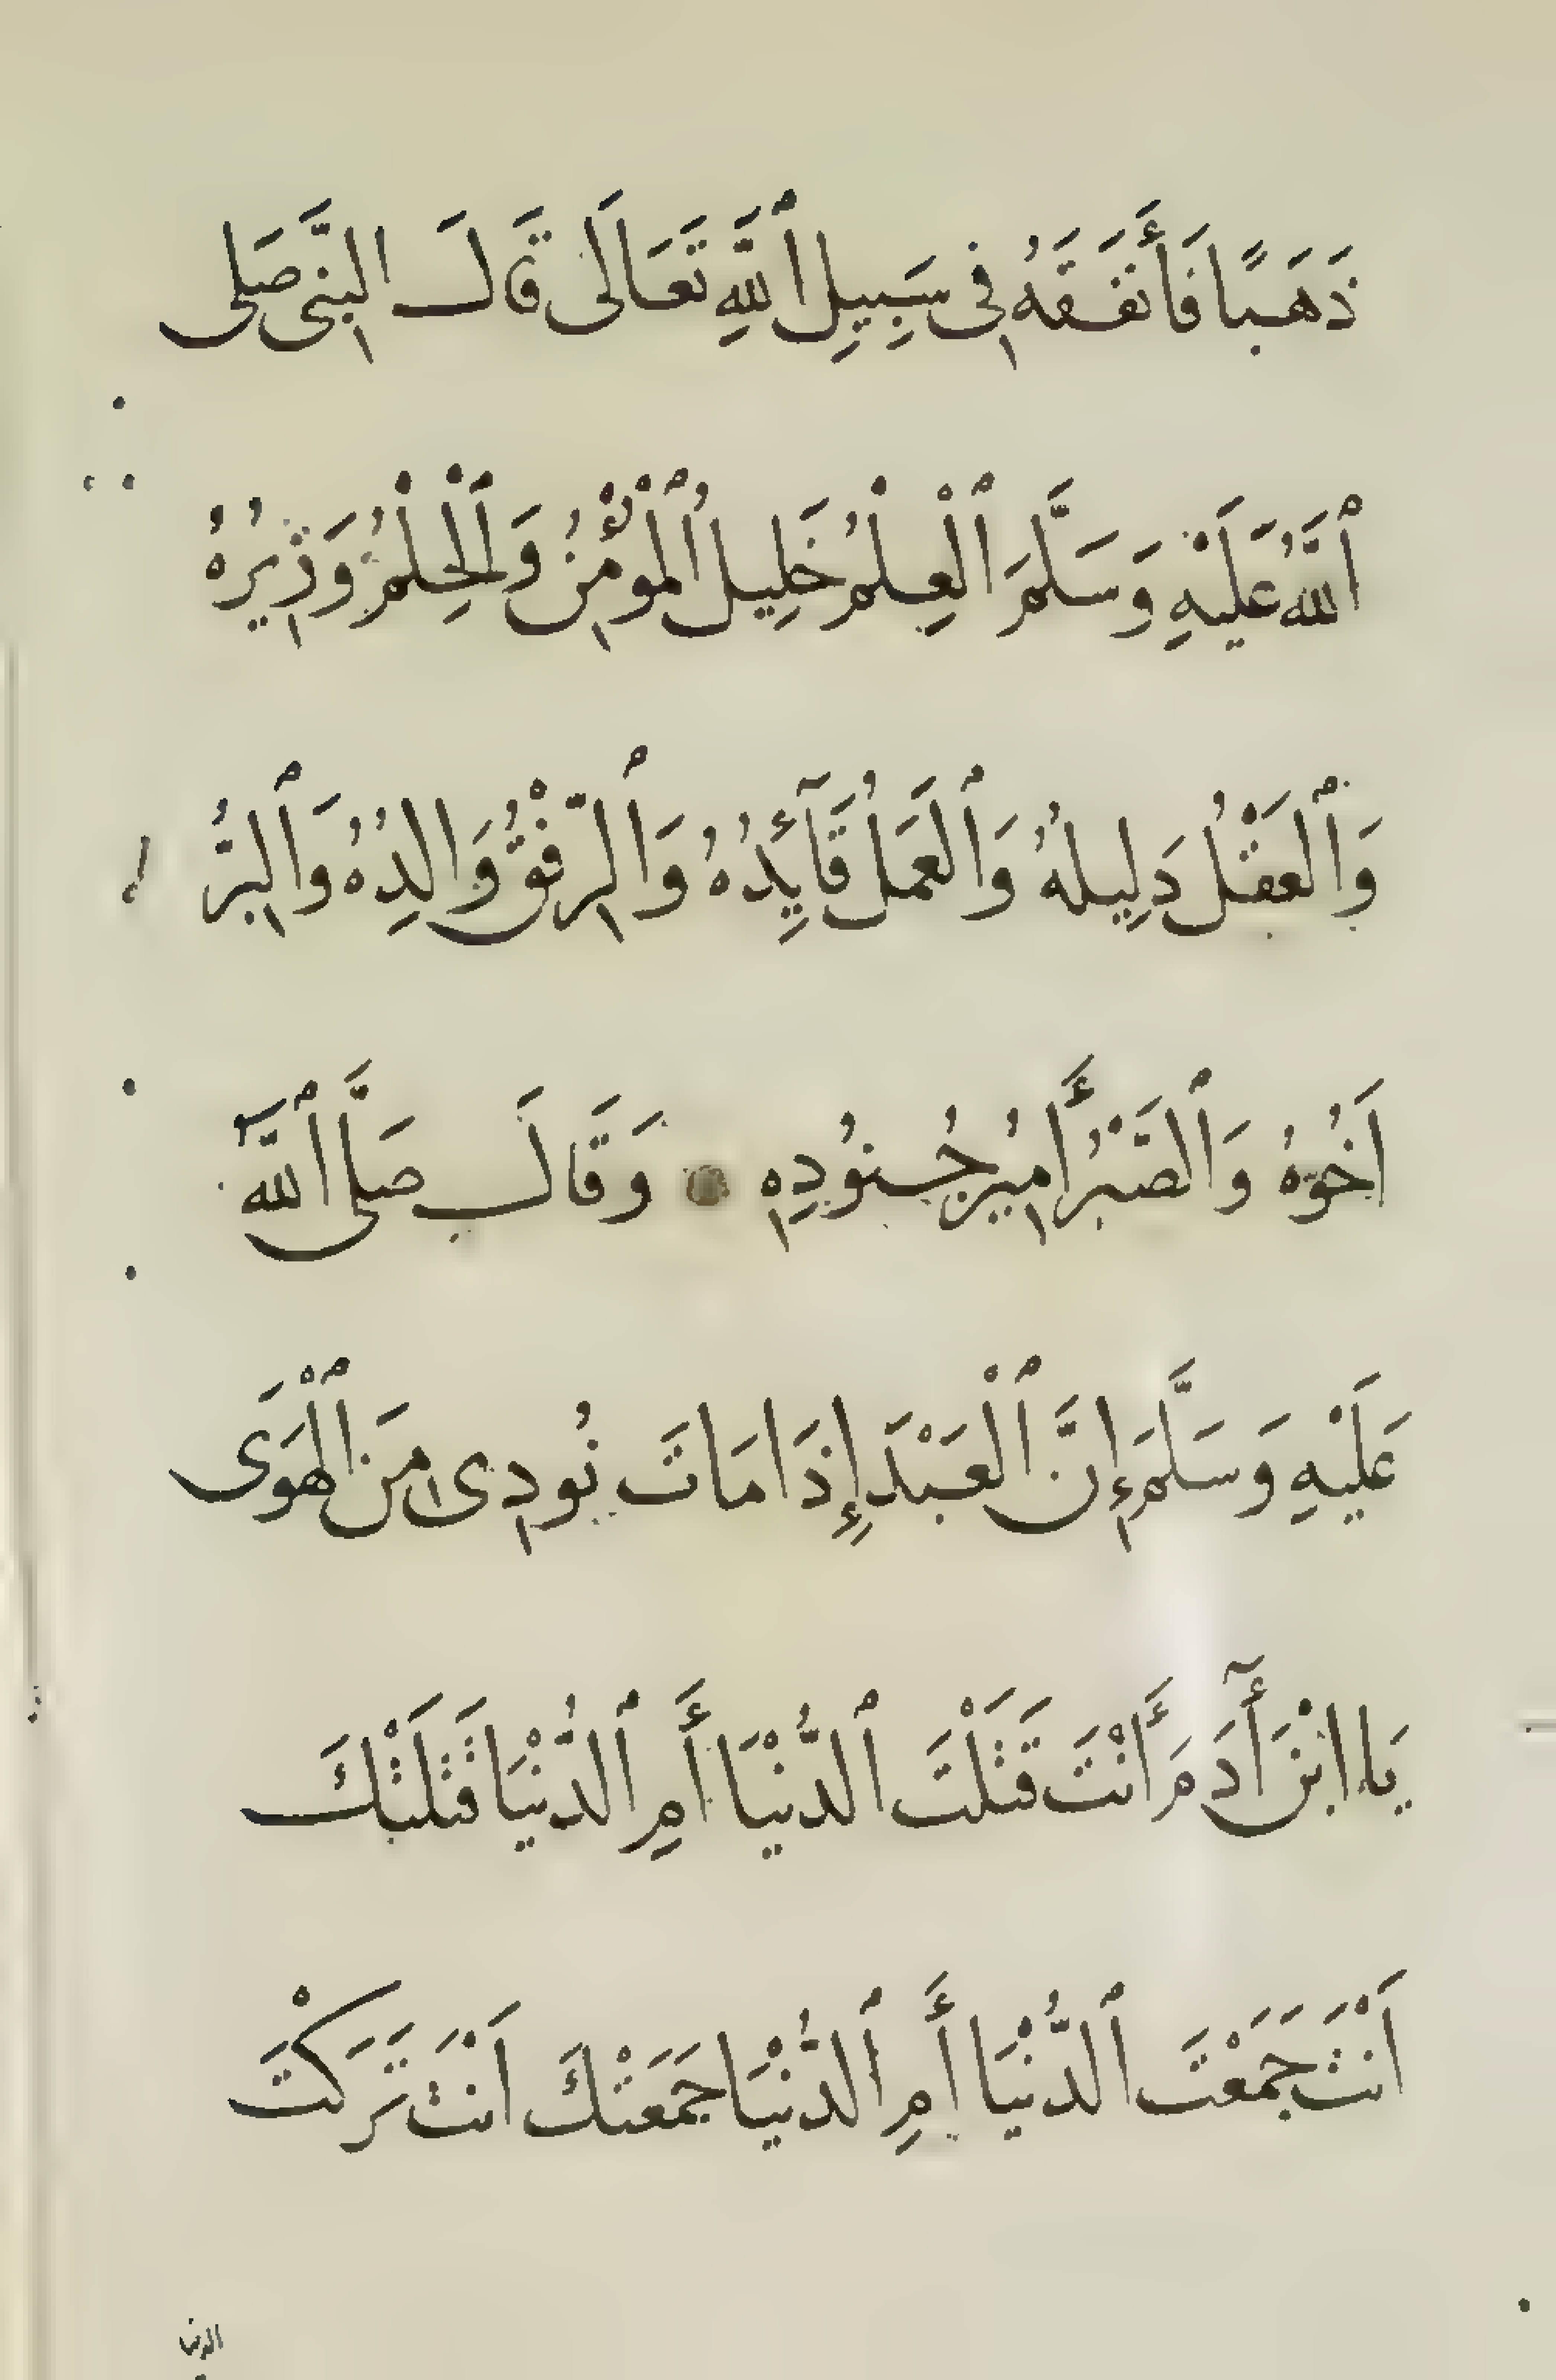 ذَهَبًا فَأَنفَقَهُ فِى سَبِيلِ ٱللَّهِ تَعَالَى قَالَ النَّبِى صَلى
ٱللَّهُ عَلَيْهِ وَسَلَّمَ ٱلْعِلْمُ خَلِيلُ ٱلْمُؤْمِنُ وَٱلْحِلْمُ وَزِيرُهُ
وَٱلعَقْلُ دَلِيلُهُ وَٱلعَمَلُ قَآئِدُهُ وَٱلرِّفْقُ وَالِدُهُ وَٱلبِرُّ
اَخُوُهُ وَٱلصَّبْرُ أَمِيرُ جُنُودِهِ وَقَالَ صَلَّى ٱللَّه
عَلَيْهِ وَسَلَّمَ إِنَّ ٱلْعَبْدَ إِذَا مَاتَ نُودِى مِنَ ٱلْهَوَى
يَا ابْنَ أٓدَمَ أَنْتَ قَتَلْتَ ٱلدُّنْيَا أَمِ ٱلدُّنْيَا قَتَلَتْكَ
اَنْتَ جَمَعْتَ ٱلدُّنْيَا أَمِ ٱلدُّنْيَا جَمَعَتْكَ اَنْتَ تَرَكْتَ
الدنيا